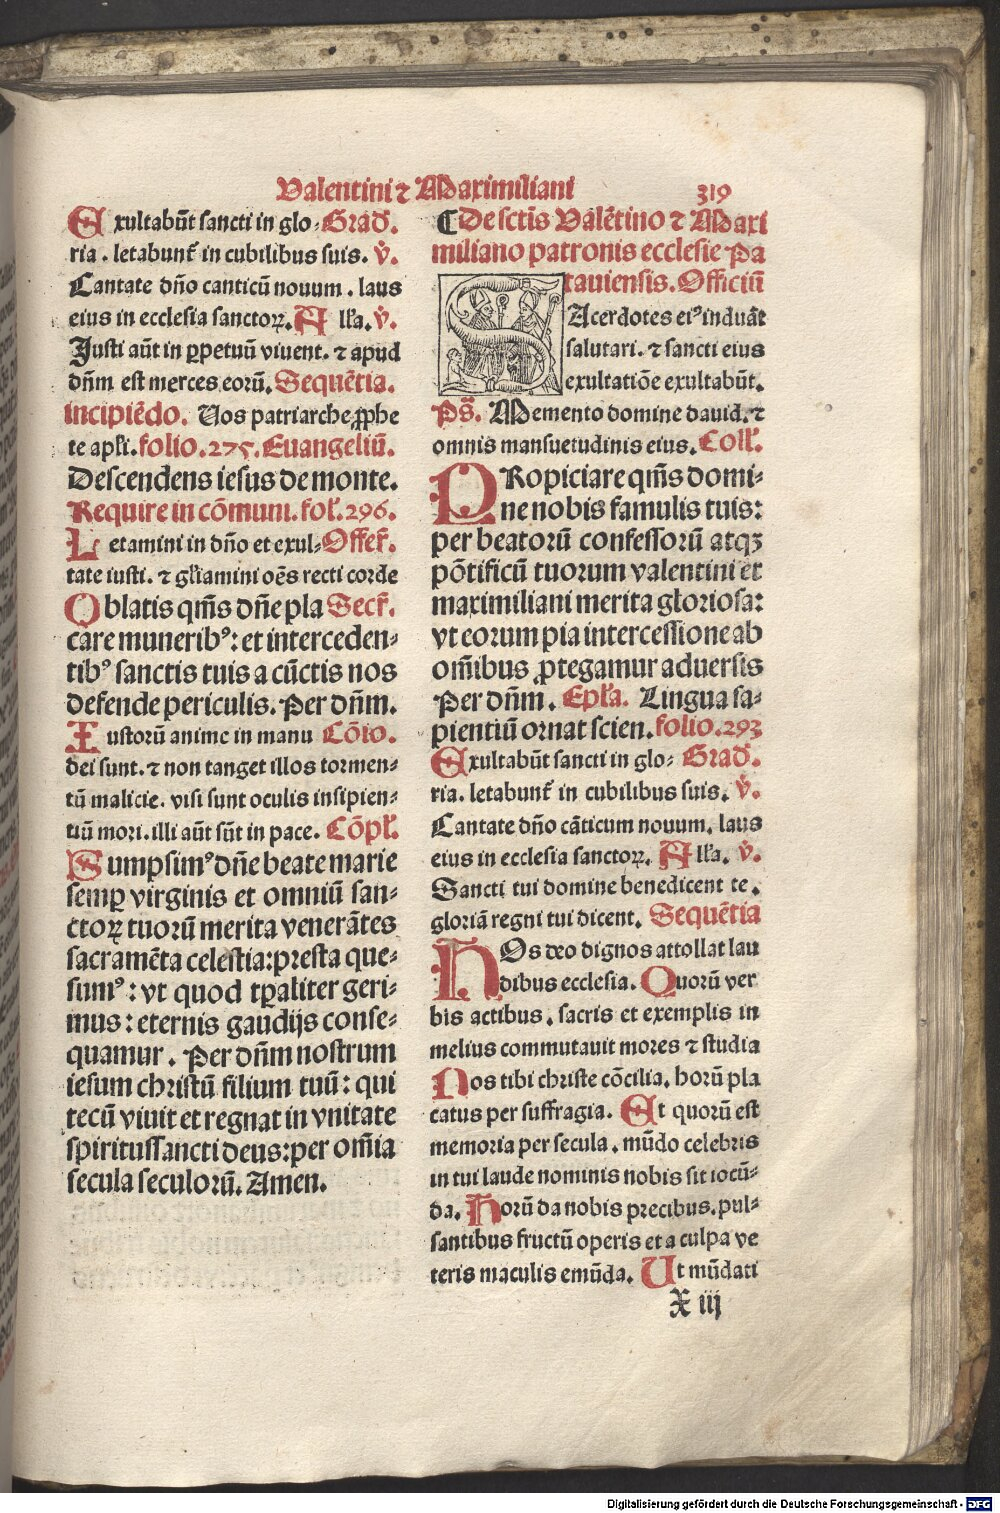 Valentini ⁊ Maximiliani 319
Exultabūt sancti in glo⸗ Grad̄.
ria . letabunt̄ in cubilibus suis. v̄.
Cantate dño canticū nouum . laus
eius in ecclesia sanctoꝝ. Alĺa. v̄.
Justi aūt in ꝑpetuū viuent. ⁊ apud
dñm est merces eorū. Sequētia.
incipiēdo. Uos patriarche ꝓphe
te apĺi. folio. 275. Euangeliū.
Descendens iesus de monte.
Require in cōmuni. foĺ. 296.
Letamini in dño et exul⸗ Offer̄.
tate iusti. ⁊ gĺiamini oēs recti corde
Oblatis qm̄s dñe pla Secr̄.
care munerib⁹: et interceden⸗
tib⁹ sanctis tuis a cūctis nos
defende periculis. Per dñm.
Iustorū anime in manu Cōio.
dei sunt. ⁊ non tanget illos tormen⸗
tū malicie. visi sunt oculis insipien⸗
tiū mori. illi aūt sūt in pace. Cōpĺ.
Sumpsim⁹ dñe beate marie
semꝑ virginis et omniū san⸗
ctoꝝ tuorū merita venerātes
sacramēta celestia: presta que⸗
sum⁹: vt quod tꝑaliter geri⸗
mus: eternis gaudijs conse⸗
quamur . Per dñm nostrum
iesum christū filium tuū: qui
tecū viuit et regnat in vnitate
spiritussancti deus: per om̄ia
secula seculorū. Amen.
¶De sctīs Valētino ⁊ Maxi
miliano patronis ecclesie Pa
tauiensis. Officiū
SAcerdotes ei⁹ induāt
salutari. ⁊ sancti eius
exultatiōe exultabūt.
Ps̄. Memento domine dauid. ⁊
omnis mansuetudinis eius. Colĺ.
PRopiciare qm̄s domi⸗
ne nobis famulis tuis:
per beatorū confessorū atqꝫ
pōtificū tuorum valentini et
maximiliani merita gloriosa:
vt eorum pia intercessione ab
om̄ibus ꝓtegamur aduersis
Per dñm . Epĺa. Lingua sa⸗
pientiū ornat scien. folio. 293
Exultabūt sancti in glo⸗ Grad̄.
ria. letabunt̄ in cubilibus suis. v̄.
Cantate dño cāticum nouum. laus
eius in ecclesia sanctoꝝ. Alĺa. v̄.
Sancti tui domine benedicent te.
gloriā regni tui dicent. Sequētia
HOs deo dignos attollat lau
dibus ecclesia. Quorū ver
bis actibus . sacris et exemplis in
melius commutauit mores ⁊ studia
Nos tibi christe cōcilia. horū pla
catus per suffragia. Et quorū est
memoria per secula . mūdo celebris
in tui laude nominis nobis sit iocū⸗
da. Horū da nobis precibus. pul⸗
santibus fructū operis et a culpa ve
teris maculis emūda. Ut mūdati
X iij
Digitalisierung gefördert durch die Deutsche Forschungsgemeinschaft - DFG